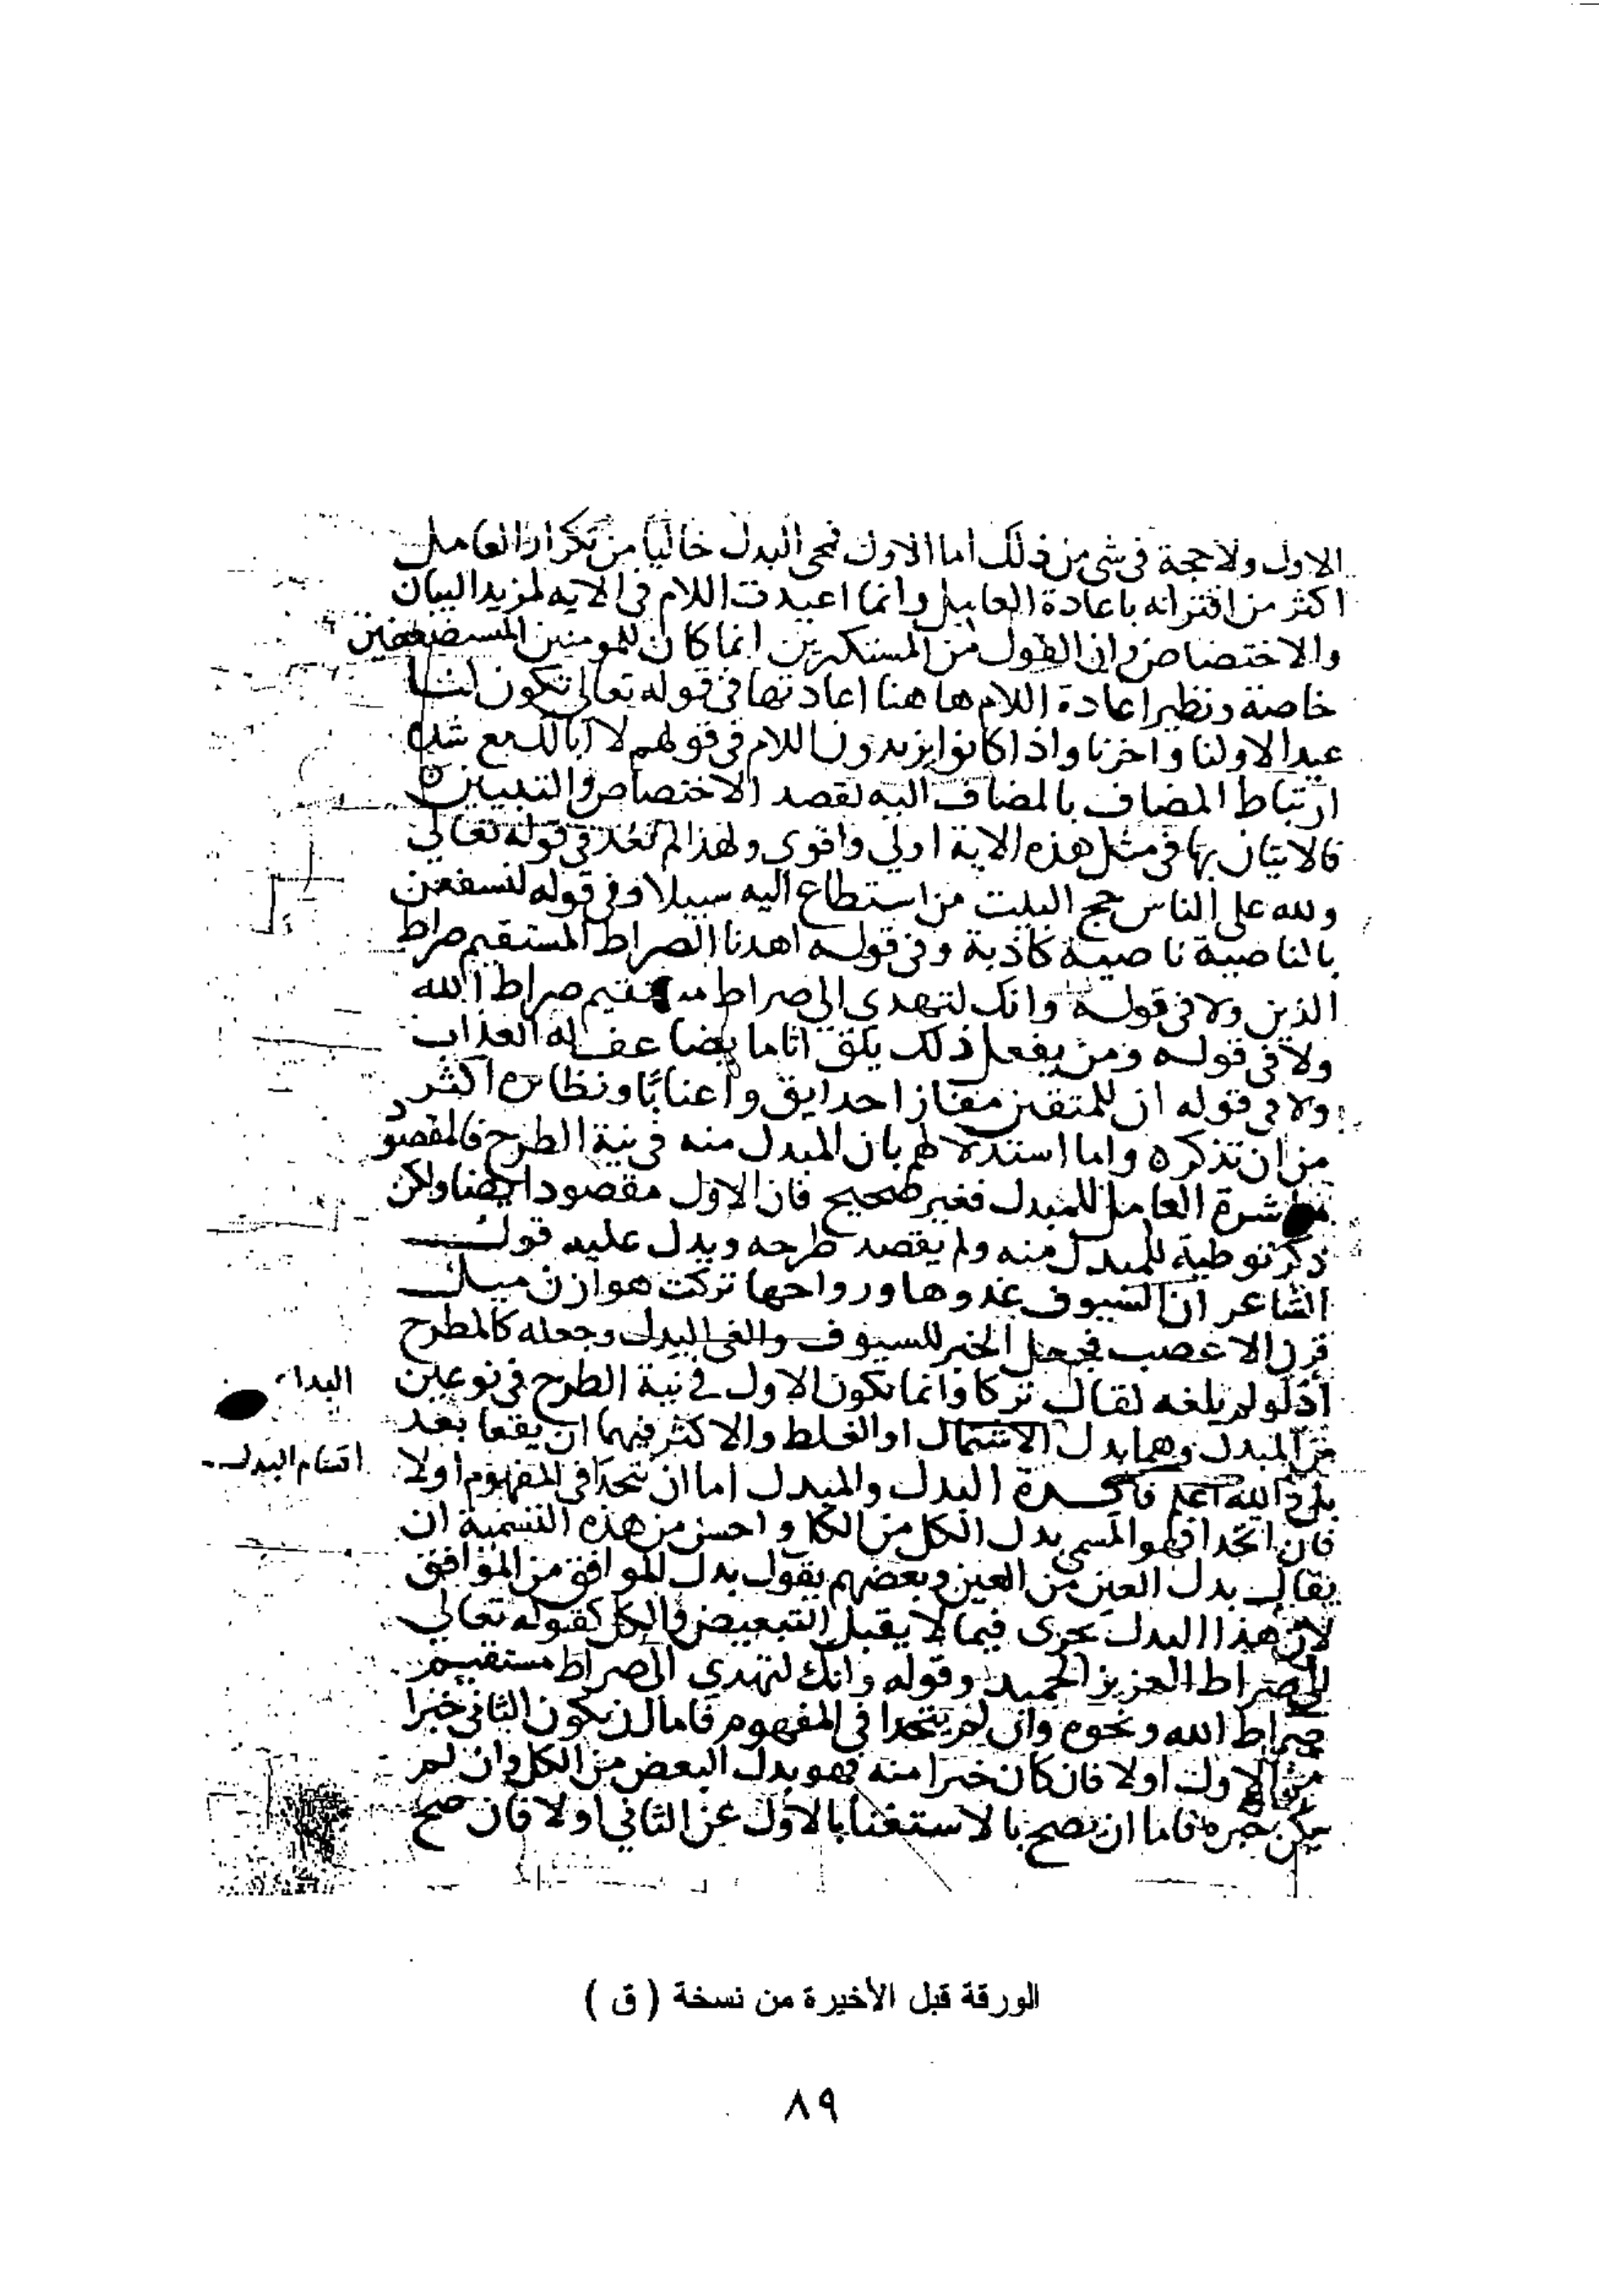 الاول ولا حجة فى شى من ذلك اما الاول فمجى البدل خاليا من تكرار العامل
اكثر من اقترانه باعادة العامل وانما اعيدت اللام فى الايه لمزيد البيان
والاختصاص وان القول من المستكبرين انما كان للمومنين المستضعفين
خاصة ونظير اعادة اللام هاهنا اعادتها فى قوله تعالى تكون لنا
عيدا لاولنا واخرنا واذا كانوا يزيدون اللام فى قولهم لا ابالك مع شدة
ارتباط المضاف بالمضاف اليه لقصد الاختصاص والتبيين
فالاتيان بها فى مثل هذه الاية اولى واقوى ولهذا لم تعد فى قوله تعالى
ولله على الناس حج البيت من استطاع اليه سبيلا وفى قوله لنسفعن
بالناصية ناصية كاذبة وفى قوله اهدنا الصراط المستقيم صراط
الذين ولا فى قوله وانك لتهدى الى صراط مستقيم صراط الله
ولا فى قوله ومن يفعل ذلك يلق اثاما يضاعف له العذاب
ولا فى قوله ان للمتقين مفازا حدايق واعنابا ونظايره اكثر
من ان تذكره واما استدلالهم بان المبدل منه فى نية الطرح فالمقصود
مباشرة العامل للمبدل فغير صحيح فان الاول مقصود ايضا ولكن
ذكر توطية للمبدل منه ولم يقصد طرحه ويدل عليه قول
الشاعر ان السيوف غدوها ورواحها تركت هوازن مثل
قرن الاعضب فجعل الخبر للسيوف والغى البدل وجعله كالمطرح
اذ لو لم يلغه لقال تركا وانما يكون الاول فى نية الطرح فى نوعين
من المبدل وهما بدل الاشتمال او الغلط والاكثر فيهما ان يقعا بعد
بل والله اعلم فائدة البدل والمبدل اما ان يتحدا فى المفهوم اولا
فان اتحدا فهو المسمى بدل الكل من الكل واحسن من هذه التسمية ان
يقال بدل العين من العين وبعضهم يقول بدل الموافق من الموافق
لان هذا البدل يجرى فيما لا يقبل التبعيض والكل كقوله تعالى
الى صراط العزيز الحميد وقوله وانك لتهدى الى صراط مستقيم
صراط الله ونحوه وان لم يتحدا فى المفهوم فاما ان يكون الثانى جزا
من الاول اولا فان كان جزا منه فهو بدل البعض من الكل وان لم
يكن جزه فاما ان يصح بالاستغنا بالاول عن الثانى اولا فان صح
اقسام البدل
الورقة قبل الأخيرة من نسخة ( ق )
٨٩